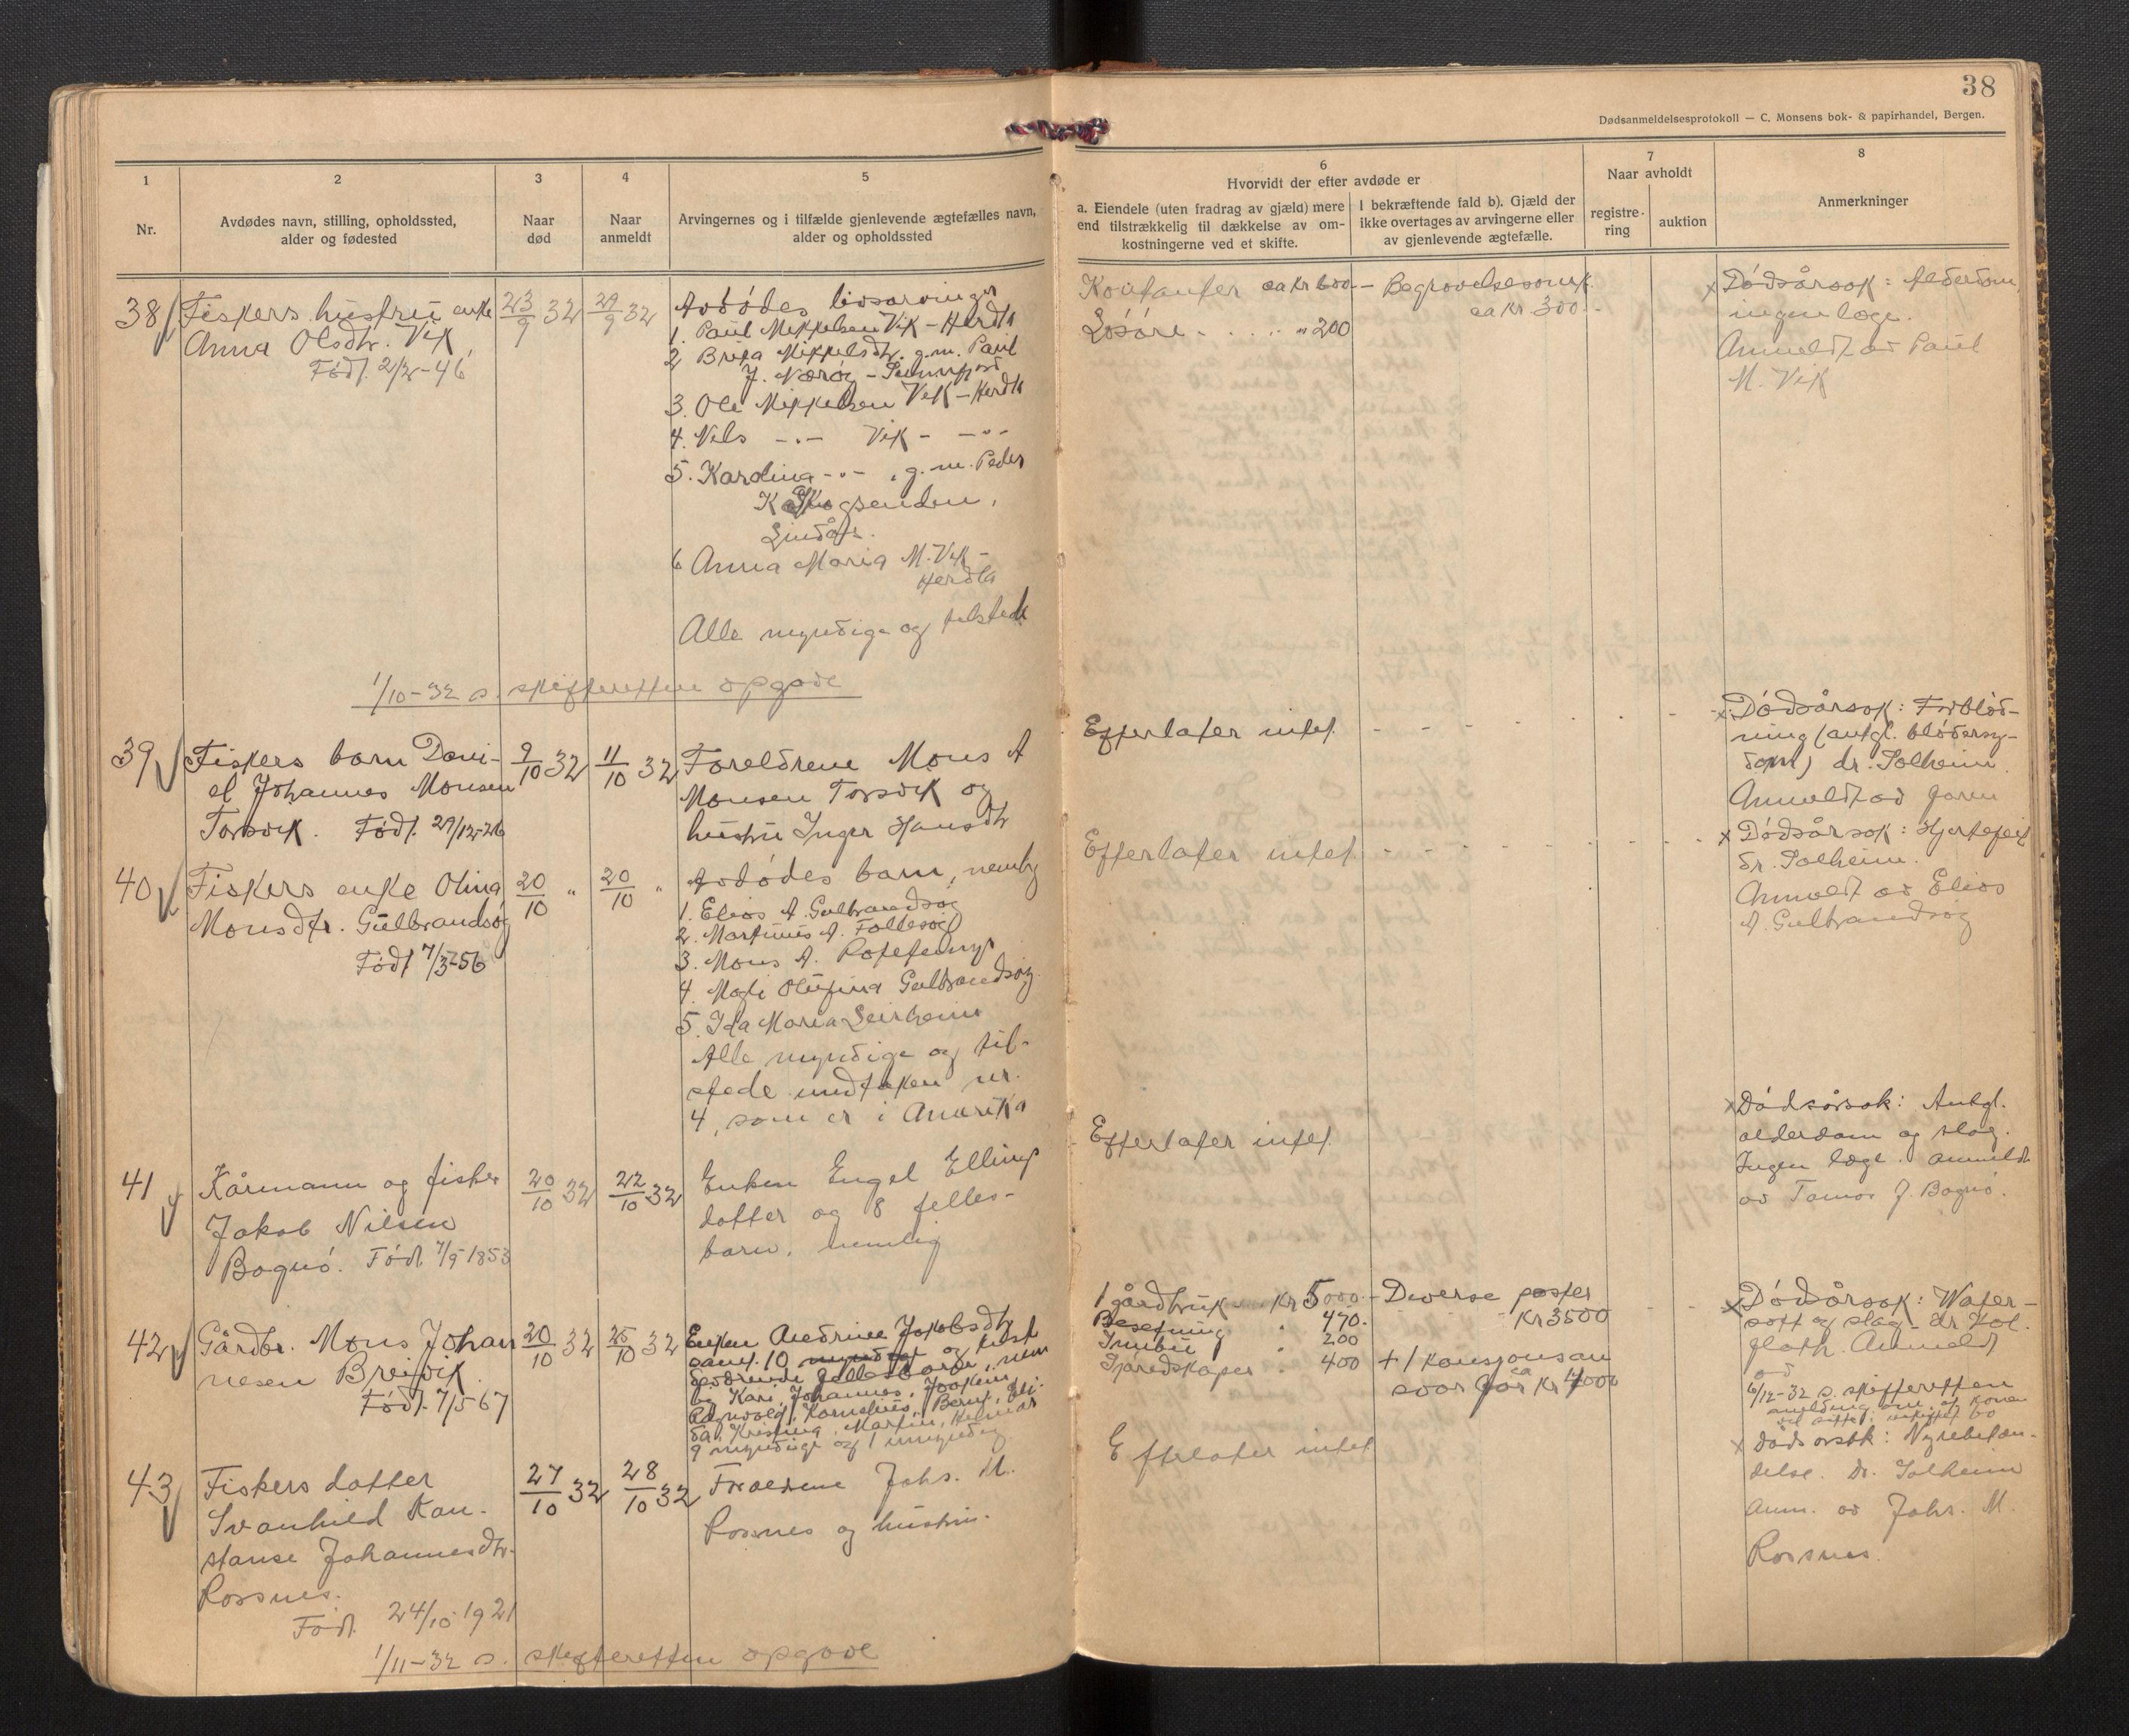 38
Dødsanmeldelsesprotokoll — C. Monsens bok- & papirhandel, Bergen.
1
2
3
4
5
6
7
8
Nr.
Avdødes navn, stilling, opholdssted,
alder og fødested
Naar
død
Naar
anmeldt
Arvingernes og i tilfælde gjenlevende ægtefælles navn,
alder og opholdssted
Hvorvidt der efter avdøde er
a. Eiendele (uten fradrag av gjæld) mere
end tilstrækkelig til dækkelse av om-
kostningerne ved et skifte.
I bekræftende fald b). Gjæld der
ikke overtages av arvingerne eller
av gjenlevende ægtefælle.
Naar avholdt
registre-
ring
auktion
Anmerkninger
38
Fiskers hustru enke
Anna Olsdtr. Vik
Født 2/2-46
23/9 32
29/9 32
Avdødes livsarvinger
1. Paul Mikkelsen Vik - Herdla
2 Brita Mikkelsdtr. g.m. Paul
3. Ole Mikkelsen Vik - Herdla
4. Nils -"- Vik - -"-
5. Karolina -"- , g.m. Peder
Lindås.
6 Anna Maria M. Vik -
Herdla
Alle myndige og tilstede
Kontanter ca kr 600.-
Løsøre - . . . " 200
Begravelsesomk.
ca kr 300.-
x Dødsårsak: Alderdom,
ingen læge.
Anmeldt av Paul
M. Vik
1/10-32 s. skifteretten opgave
39
Fiskers barn Dani-
el Johannes Monsen
Torsvik. Født 29/12-26
9/10 32
11/10 32
Foreldrene Mons A
Monsen Torsvik og
hustru Inger Hansdtr
Efterlater intet
x Dødsårsak: Forblød-
ning (antgl. blødersy-
dom) dr. Solheim.
Anmeldt av faren
40
Fiskers enke Olina
Monsdtr. Gulbrandsøy
Født 7/3-56
20/10 "
20/10 "
Avdødes barn, nemlig
1. Elias A. Gulbrandsøy
2. Martinus A. Follesøy
3. Mons A.
4. Olufina Gulbrandsøy
5. Ida Maria Leirheim
Alle myndige og til-
stede undtaken nr.
4, som er i Amerika
Efterlater intet
x Dødsårsak: Hjertefeil
dr. Solheim.
Anmeldt av Elias
A. Gulbrandsøy
41
Kårmann og fisker
Jakob Nilsen
Bognø. Født 7/9 1853
20/10 32
22/10 32
Enken Engel Ellings
datter og 8 felles-
barn. nemlig
Efterlater intet
x Dødsårsak: Antgl.
alderdom og slag.
Ingen læge. anmeldt
av Tomas J. Bognø.
42
Gårdbr. Mons Johan
nesen Breivik
Født 7/5 67
20/10 32
25/10 32
Enken Andrine Jakobsdtr
samt 10
fellesbarn, nem
lig Kari, Johannes, Joakim,
Ragnvald, Kornelius, Bernt, Eli-
da, Kristina, Martin, Helmer
9 myndige og 1 umyndig
1 gårdbruk - Kr 5000.-
Besetning " 470.-
Innbu " 200
Gjeredskaper " 400
Diverse poster
Kr 3500
+ 1 kausjonsan
svar for ca kr 4000
x Dødsårsak: Water-
sott og slag - dr Kol.
Anmeldt
av
6/12-32 s. skifteretten
43
Fiskers datter
Svanhild Kon-
stanse Johannesdtr.
Rossnes.
Født 24/10 1921
27/10 32
28/10 32
Foreldrene Johs. M.
Rossnes og hustru.
Efterlater intet
x Dødsårsak: Nyrebeten-
delse. Dr. Solheim
Anm. av Johs. M.
Rossnes.
1/11-32 s. skifteretten opgave